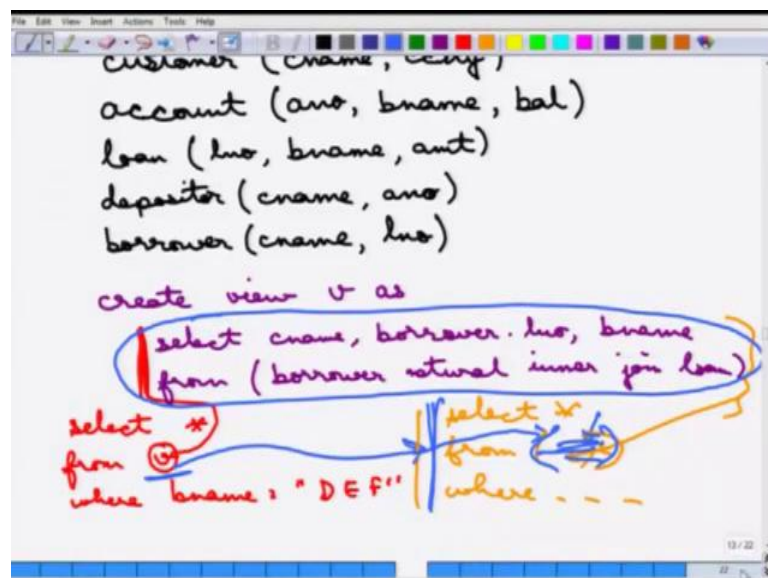 File Edit View Insert Actions Tools Help
customer (cname, ccity)
account (ano, bname, bal)
loan (lno, bname, amt)
depositor (cname, ano)
borrower (cname, lno)
create view v as
select cname, borrower.lno, bname
from (borrower natural inner join loan)
select *
from v
where bname = "DEF"
select *
from ( )
where - - -
13/22
22